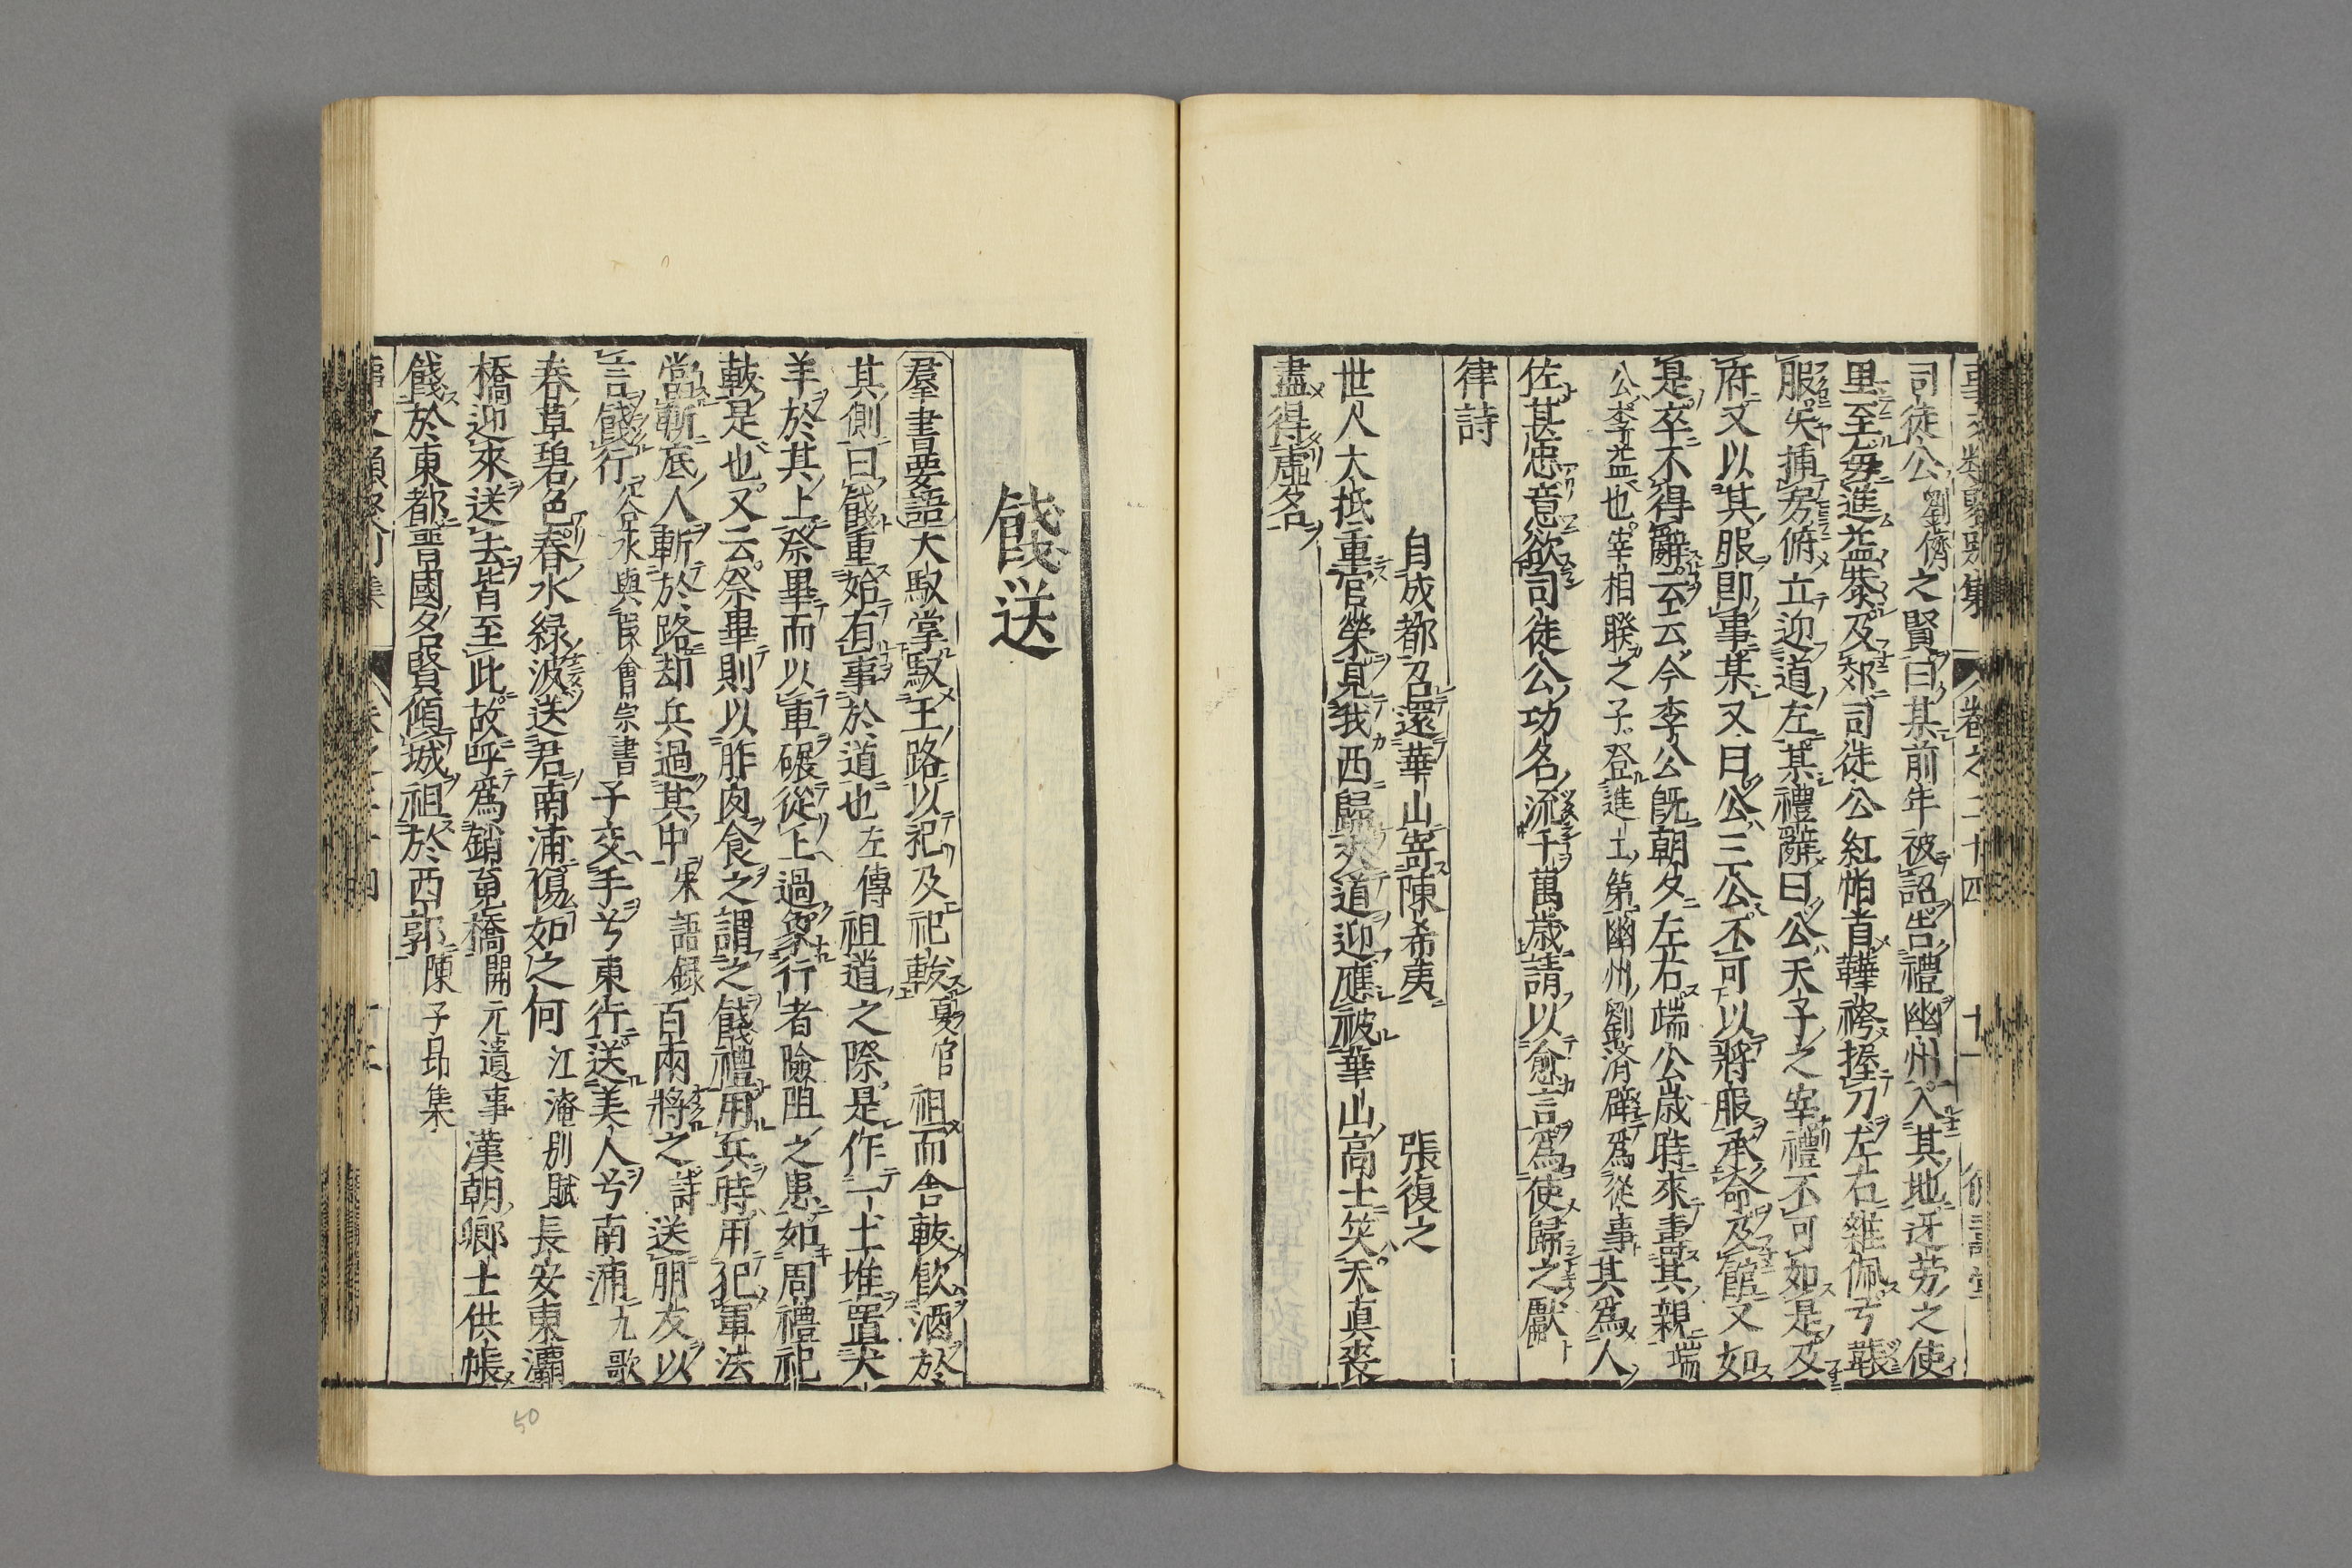 司徒公劉濟之賢曰某前年被詔告禮幽州入其地迓勞之使
里至每進益恭及郊司徒公紅帕首鞾袴握刀左右雜佩弓韔
服矢插房俯立迎道左某禮辭曰公天子之宰禮不可如是及
府又以其服即事某又曰公三公不可以將服承命及館又如
是卒不得辭云云今李公旣朝夕左右端公歲時來壽其親端
公李益也宰相睽之子登進士第幽州劉濟辟爲從事其爲人
佐甚忠意欲司徒公功名流千萬歲請以愈言爲使歸之獻
律詩
自成都召還華山寄陳希夷 張復之
世人大抵重官榮見我西歸夾道迎應被華山高士笑天真喪
盡得虛名
餞送
羣書要語大馭掌馭王路以祀及祀軷夏官 祖而舍軷飮酒於
其側曰餞重始有事於道也左傳祖道之際是作一土堆置犬
羊於其上祭畢而以車碾從上過象行者險阻之患如周禮祀
軷是也又云祭畢則以胙肉食之謂之餞禮用兵時用犯軍法
當斬底人斬於路却兵過其中朱語録百兩將之詩送朋友以
言餞行谷永與段會宗書子交手兮東行送美人兮南浦九歌
春草碧色春水綠波送君南浦傷如之何江淹别賦長安東灞
橋迎來送去皆至此故呼爲銷䰟橋開元遺事漢朝卿士供帳
餞於東都晉國名賢傾城祖於西郭陳子昂集
50